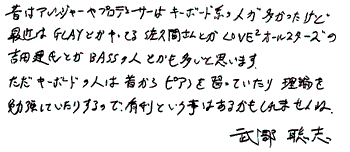 昔はアレンジャーやプロデューサーはキーボード系の人が多かったけど
最近はGLAYとかやってる佐久間さんとかLOVE²オールスターズの
吉田建氏とかBASSの人とかも多いと思います。
ただキーボードの人は昔からピアノを習っていたり理論を
勉強していたりするので、有利という事はあるかもしれませんね。
武部聡志